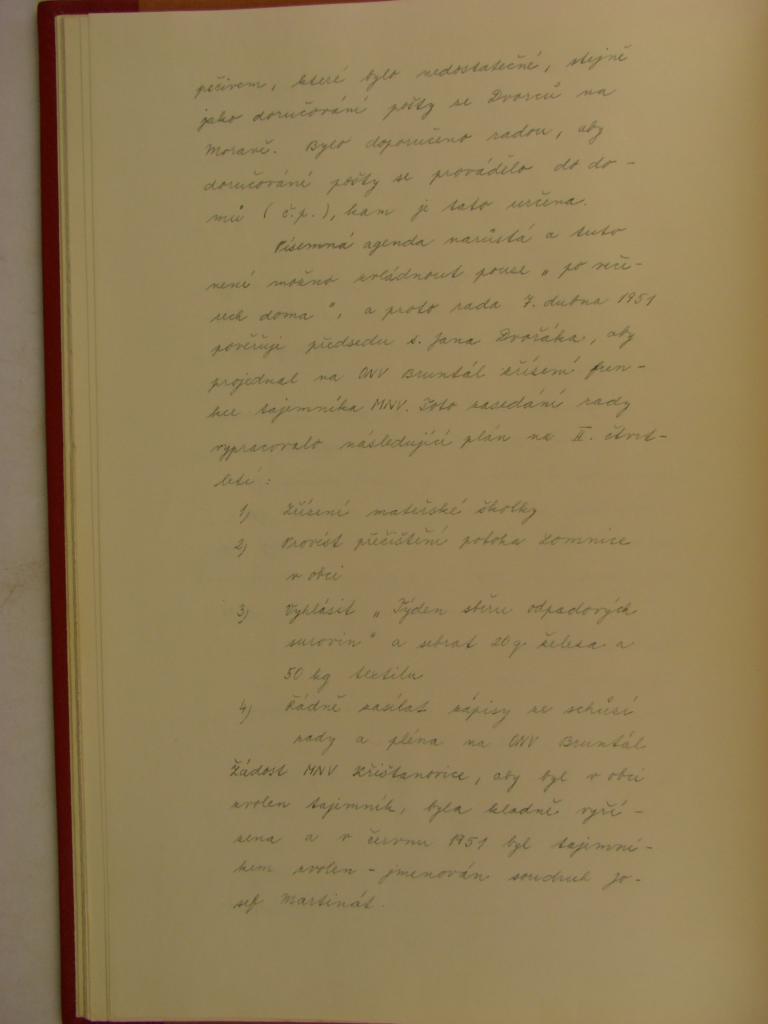 pečivem, které bylo nedostatečné, stejně
jako doručování pošty ze Dvorců na
Moravě. Bylo doporučeno radou, aby
doručování pošty se provádělo do do-
mů (č.p.), kam je tato určena.
Písemná agenda narůstá a tuto
není možno zvládnout pouze „po veče-
rech doma", a proto rada 7. dubna 1951
pověřuje předsedu s. Jana Dvořáka, aby
projednal na ONV Bruntál zřízení fun-
kce tajemníka MNV. Toto zasedání rady
vypracovalo následující plán na II. čtvrt-
letí:
1) Zřízení mateřské školky
2) Provést přečištění potoka Lomnice
v obci
3) Vyhlásit „Týden sběru odpadových
surovin" a sebrat 20 q železa a
50 kg textilu
4) Řádně zasílat zápisy ze schůzí
rady a pléna na ONV Bruntál
Žádost MNV Křišťanovice, aby byl v obci
zvolen tajemník, byla kladně vyří-
zena a v červnu 1951 byl tajemní-
kem zvolen - jmenován soudruh Jo-
sef Martinát.